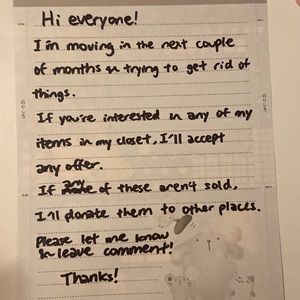 Hi everyone!
I'm moving in the next couple
of months n trying to get rid of
things.
If you're interested in any of my
items in my closet, I'll accept
any offer.
If any of these aren't sold,
I'll donate them to other places.
Please let me know
n leave comment!
Thanks!